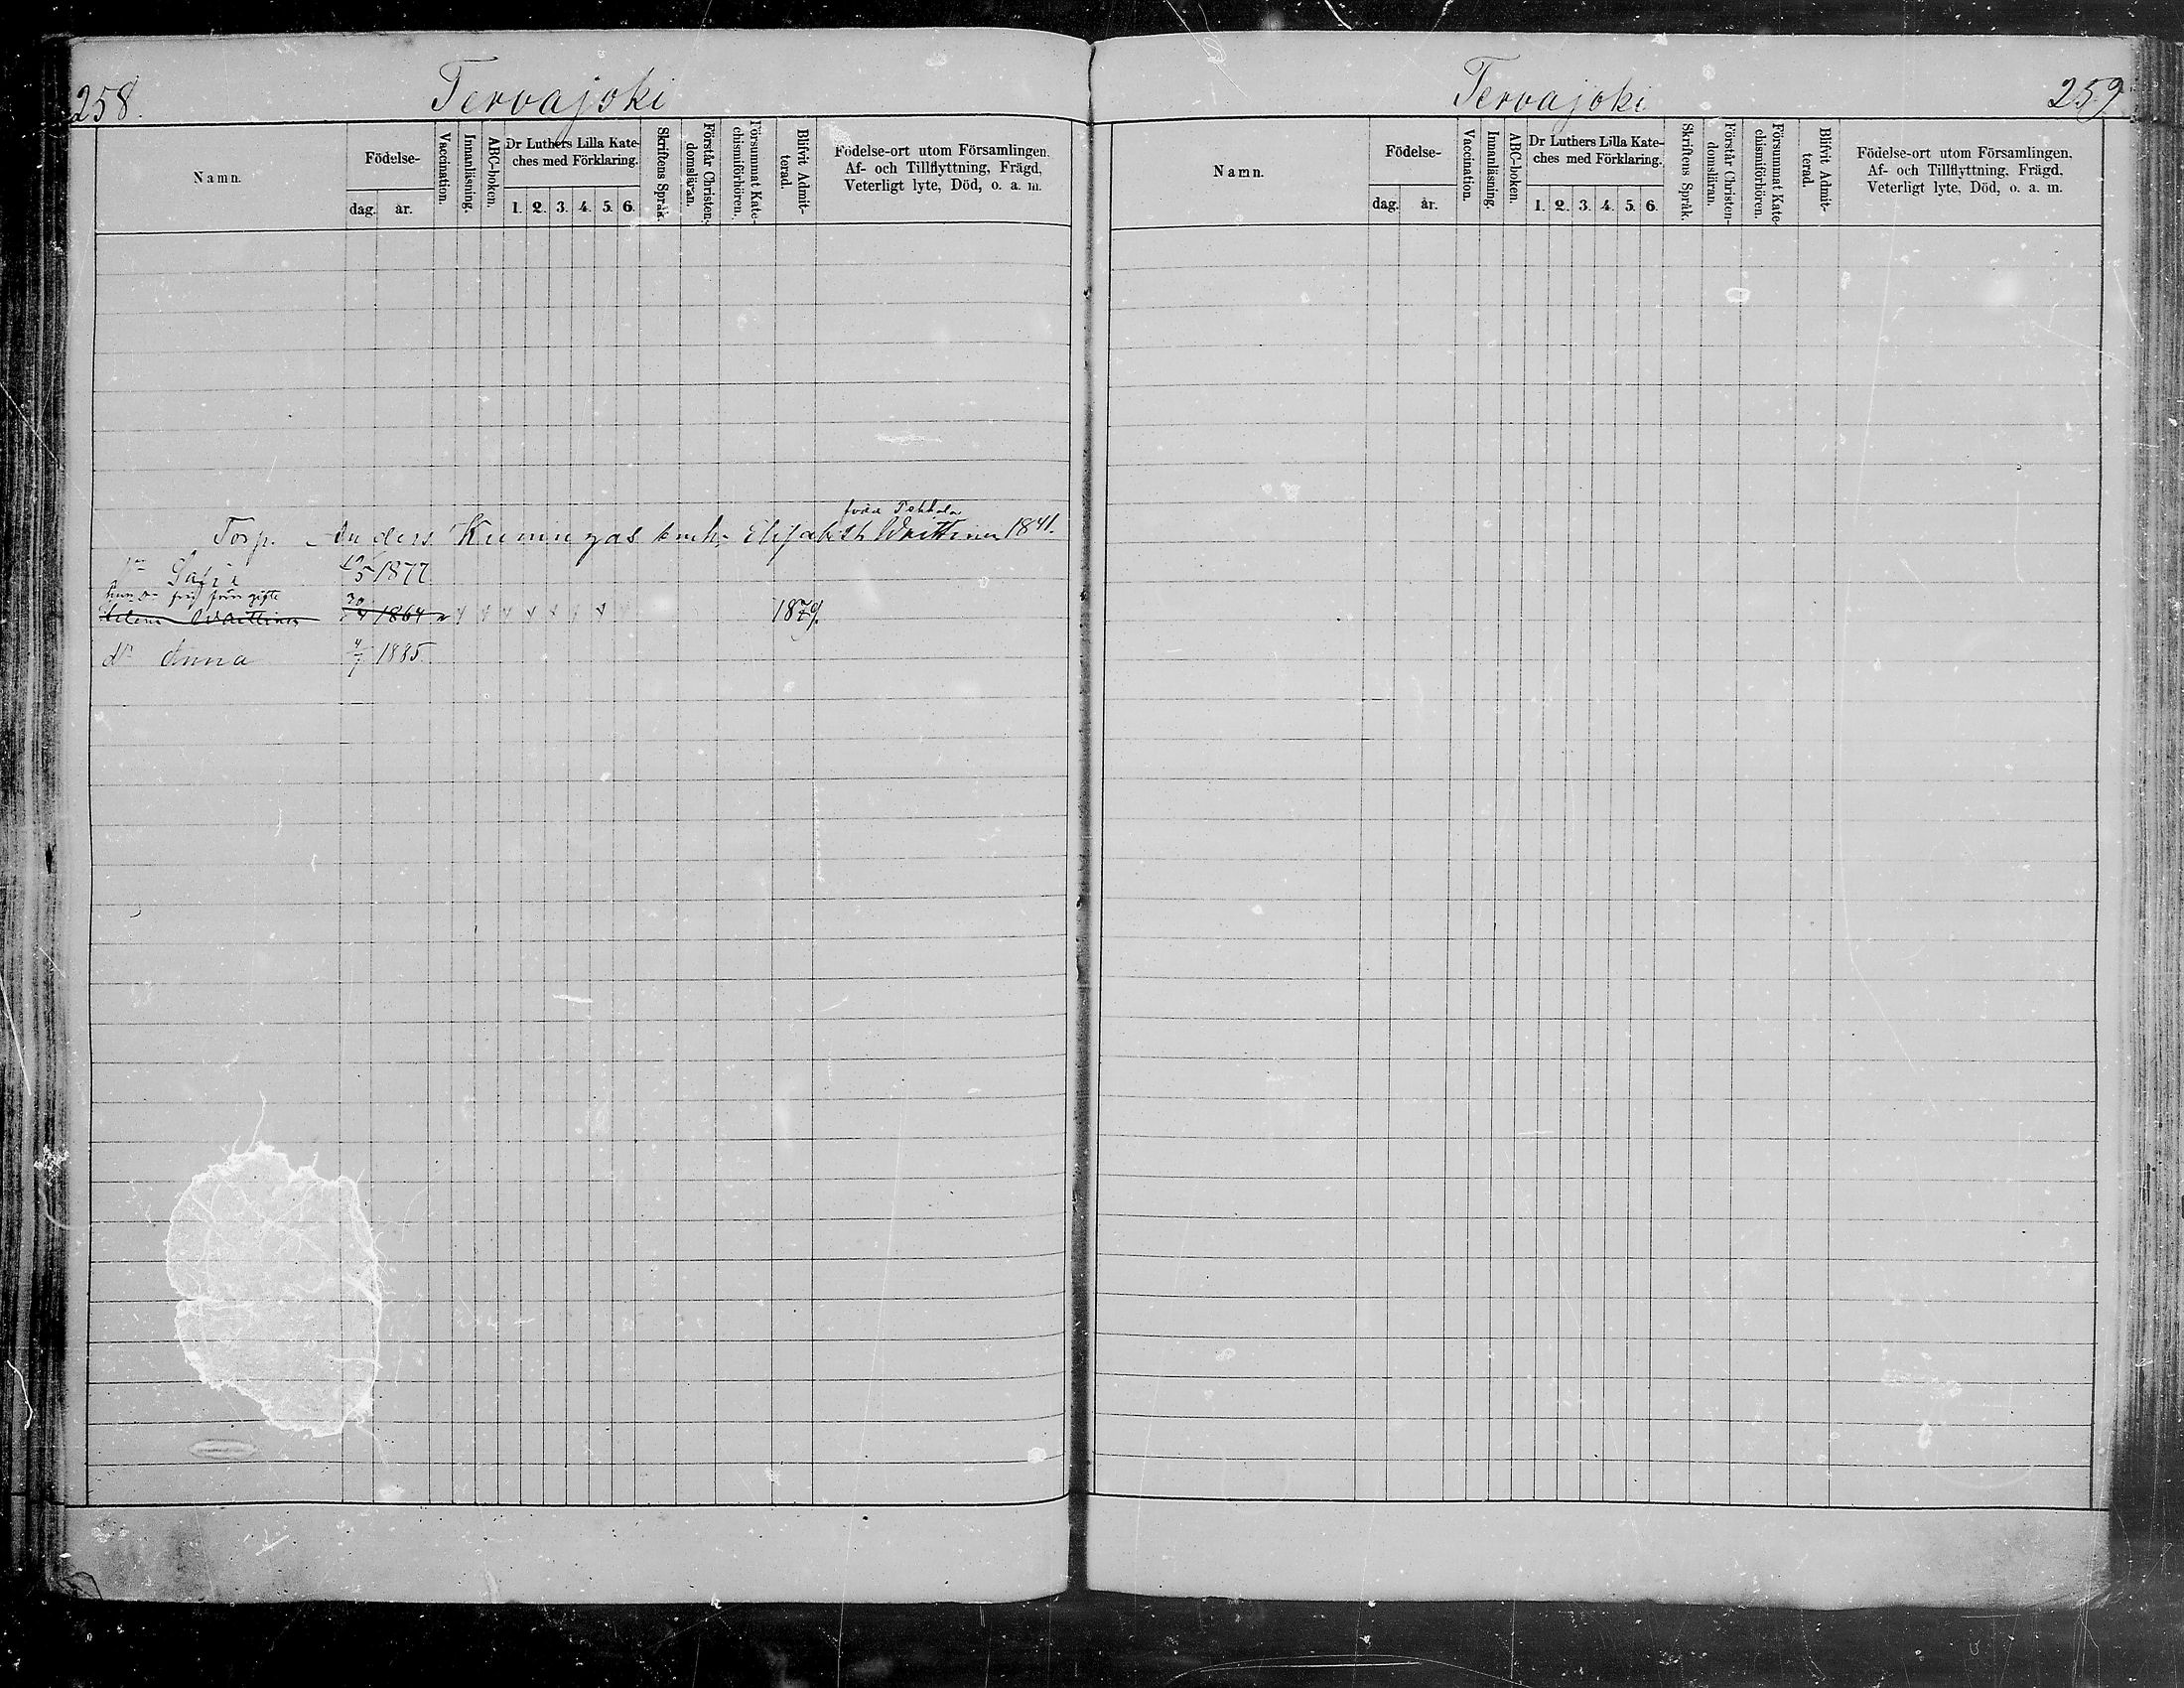 258.
Tervajoki
Namn.
Födelse-
dag. år.
Vaccination.
Innanläsning.
ABC-boken.
Dr Luthers Lilla Kate-
ches med Förklaring.
1. 2. 3. 4. 5. 6.
Skriftens Språk.
Förstår Christen-
domsläran.
Försummat Kate-
chismiförhören.
Blifvit Admit-
terad.
Födelse-ort utom Församlingen.
Af- och Tillflyttning, Frägd,
Veterligt lyte, Död, o. a. m.
född
Torp. Anders Kuningas enk. Elisabeth 1841.
5 1877
från gifte
Helena 30 4 1864 1879.
dr Anna 4/7 1885.
Tervajoki
259
Namn.
Födelse-
dag. år.
Vaccination.
Innanläsning.
ABC-boken.
Dr Luthers Lilla Kate-
ches med Förklaring.
1. 2. 3. 4. 5. 6.
Skriftens Språk.
Förstår Christen-
domsläran.
Försummat Kate-
chismiförhören.
Blifvit Admit-
terad.
Födelse-ort utom Församlingen,
Af- och Tillflyttning, Frägd,
Veterligt lyte, Död, o. a. m.